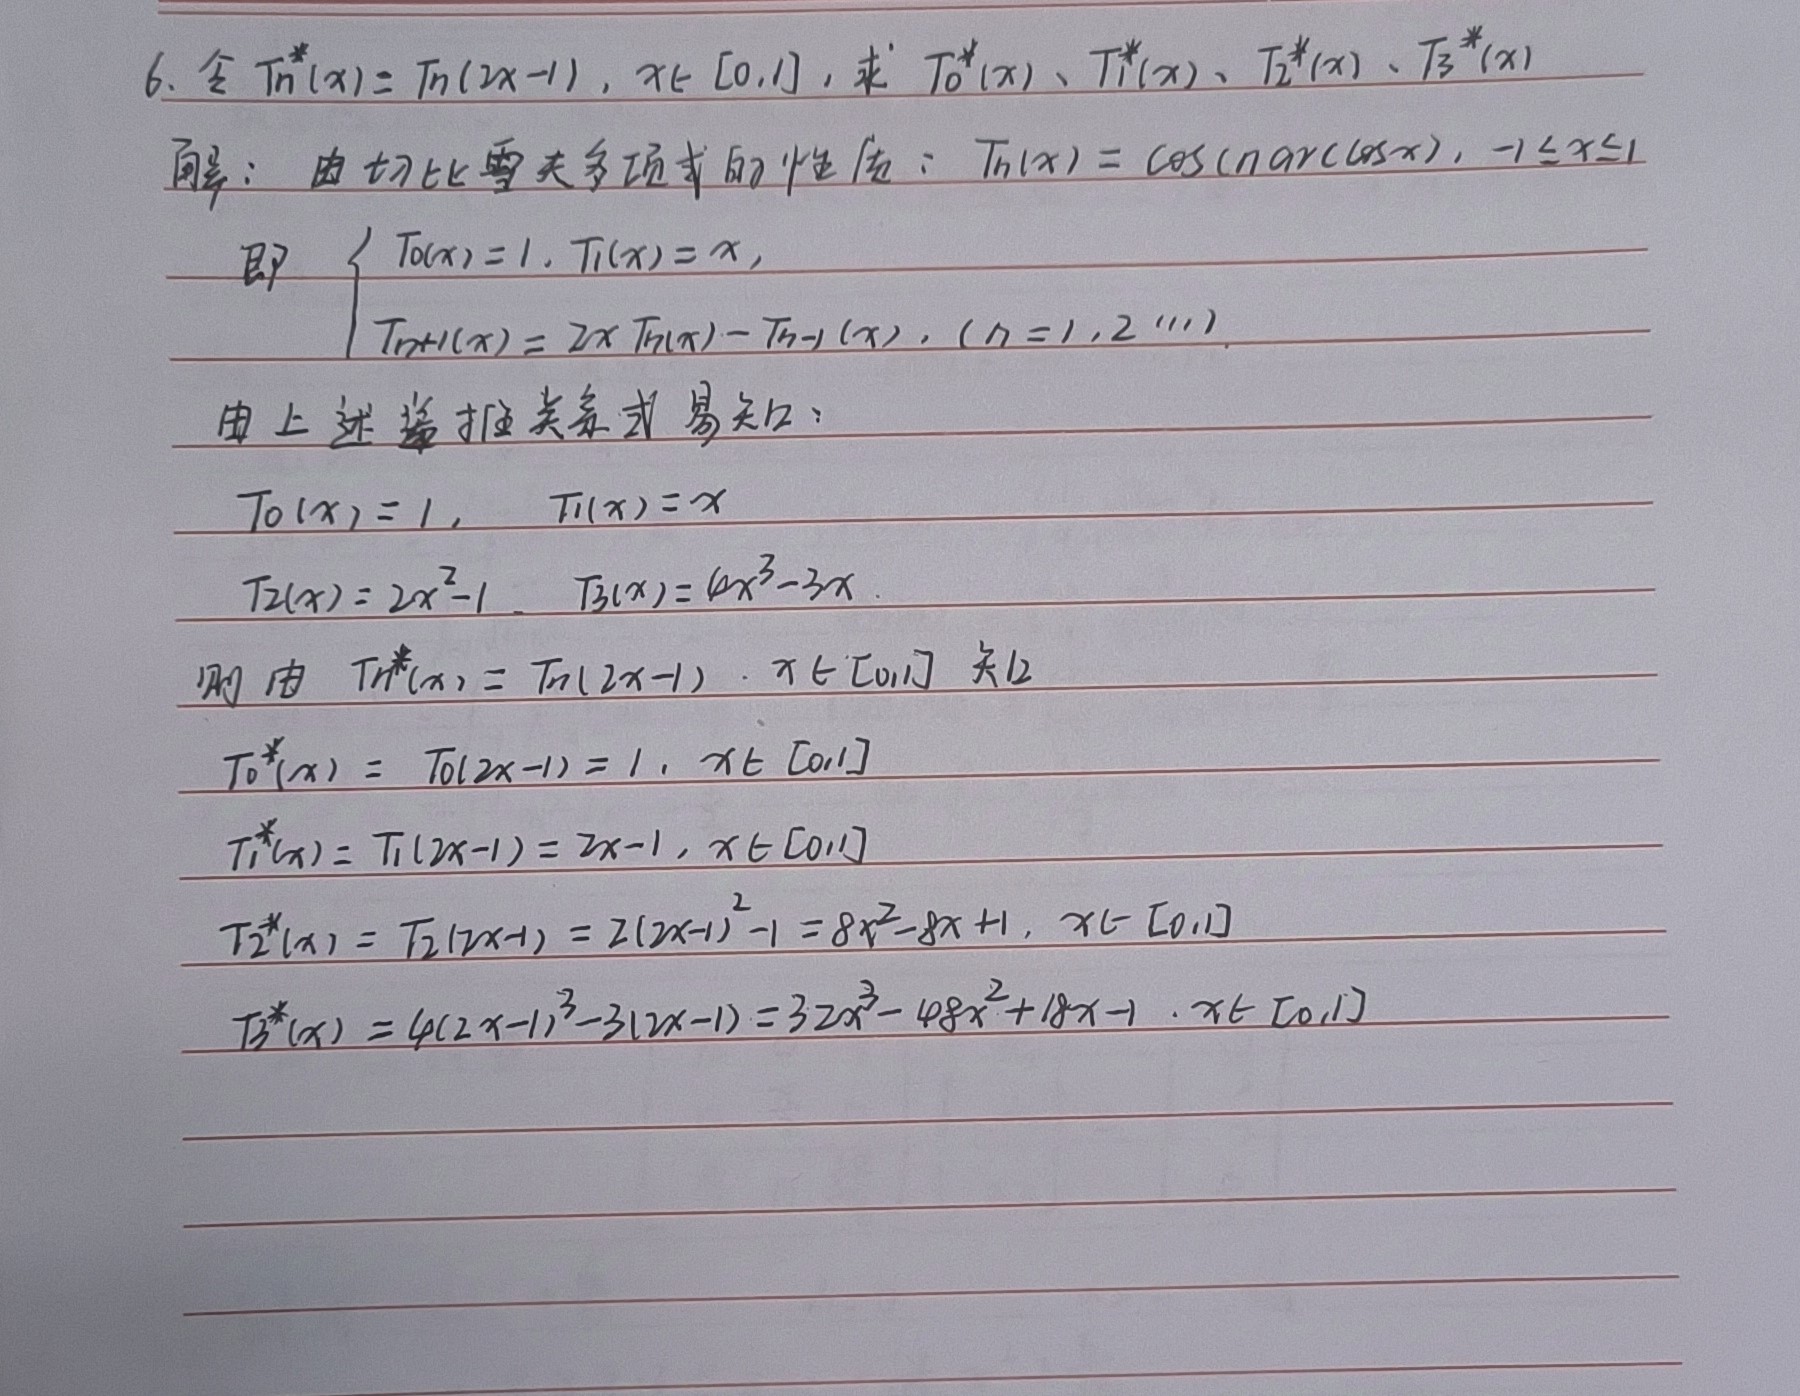 6. 令 Tn*(x) = Tn(2x-1), x∈[0,1], 求 T0*(x)、T1*(x)、T2*(x)、T3*(x)
解: 由切比雪夫多项式的性质: Tn(x) = cos(n arccosx), -1≤x≤1
即 { T0(x) = 1, T1(x) = x,
Tn+1(x) = 2x Tn(x) - Tn-1(x), (n=1,2 ...)
由上述递推关系式易知:
T0(x) = 1, T1(x) = x
T2(x) = 2x²-1. T3(x) = 4x³-3x.
则由 Tn*(x) = Tn(2x-1). x∈[0,1] 知
T0*(x) = T0(2x-1) = 1, x∈[0,1]
T1*(x) = T1(2x-1) = 2x-1, x∈[0,1]
T2*(x) = T2(2x-1) = 2(2x-1)²-1 = 8x²-8x+1, x∈[0,1]
T3*(x) = 4(2x-1)³-3(2x-1) = 32x³-48x²+18x-1. x∈[0,1]